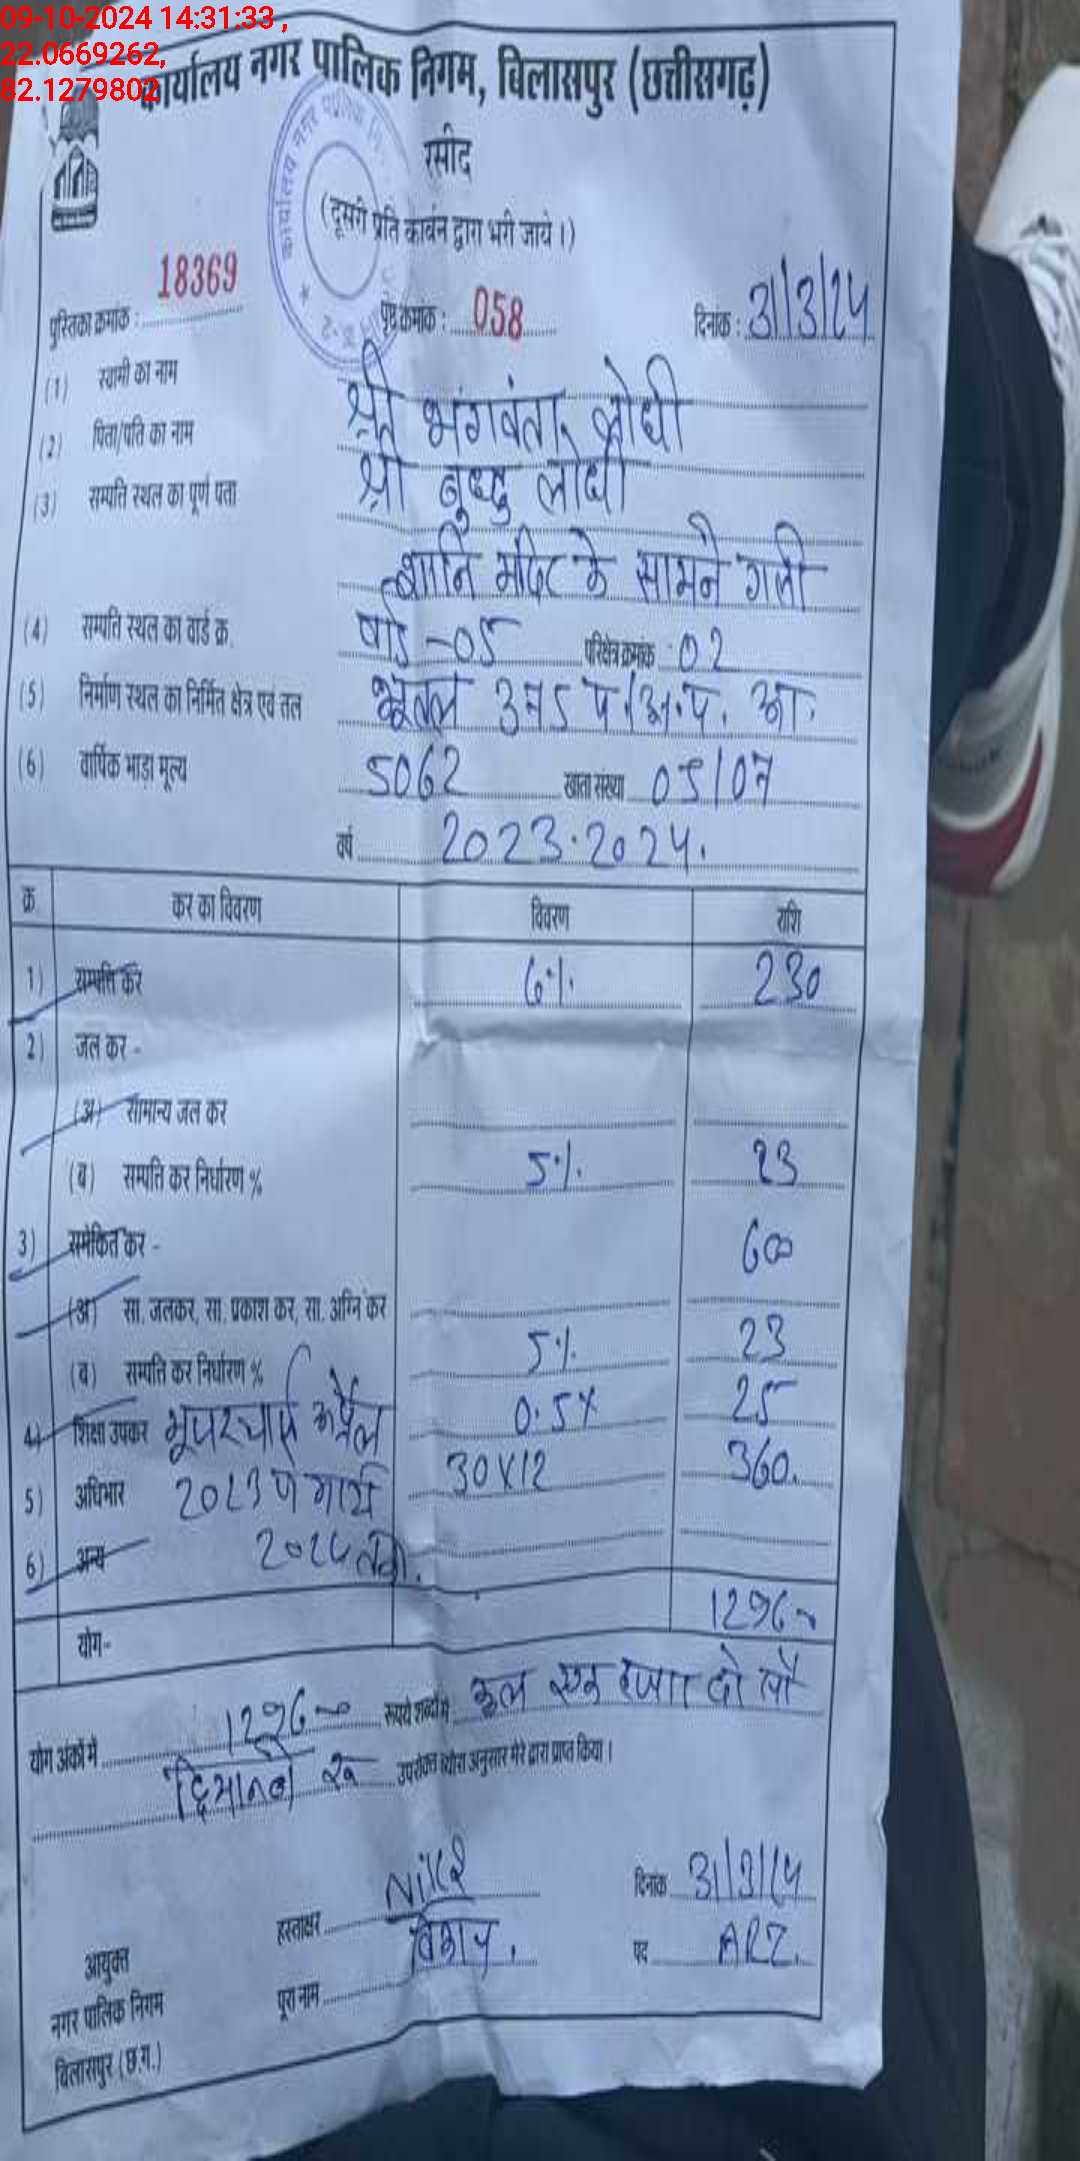 09-10-2024 14:31:33 ,
22.0669262,
82.1279802
कार्यालय नगर पालिक निगम, बिलासपुर (छत्तीसगढ़)
रसीद
(दूसरी प्रति कार्बन द्वारा भरी जाये।)
पुस्तिका क्रमांक : 18369 पृष्ठ क्रमांक : 058 दिनांक : 31/3/24
(1) स्वामी का नाम श्री भगवंता लोधी
(2) पिता/पति का नाम श्री बुध्दु लोधी
(3) सम्पत्ति स्थल का पूर्ण पता
मंदिर के सामने गली
(4) सम्पत्ति स्थल का वार्ड क्र. वार्ड -05 परिक्षेत्र क्रमांक : 02
(5) निर्माण स्थल का निर्मित क्षेत्र एवं तल भूतल
(6) वार्षिक भाड़ा मूल्य 5062 खाता संख्या 05/07
वर्ष 2023-2024.
क्र. कर का विवरण विवरण राशि
1) सम्पत्ति कर 6% 230
2) जल कर -
(अ) सामान्य जल कर
(ब) सम्पत्ति कर निर्धारण % 5% 23
3) समेकित कर - 600
(अ) सा. जलकर, सा. प्रकाश कर, सा. अग्नि कर
(ब) सम्पत्ति कर निर्धारण % 5% 23
4) शिक्षा उपकर यूजरचार्ज अप्रैल 0.5% 25
5) अधिभार 2023 से मार्च 30x12 360.
6) अन्य 2024 तक.
योग- 1296
योग अंकों में 1296 रूपये शब्दों में कुल एक हजार दो सौ
छियानबे रू उपरोक्त ब्योरा अनुसार मेरे द्वारा प्राप्त किया।
हस्ताक्षर दिनांक 31/3/24
आयुक्त
पूरा नाम पद
नगर पालिक निगम
बिलासपुर (छ.ग.)